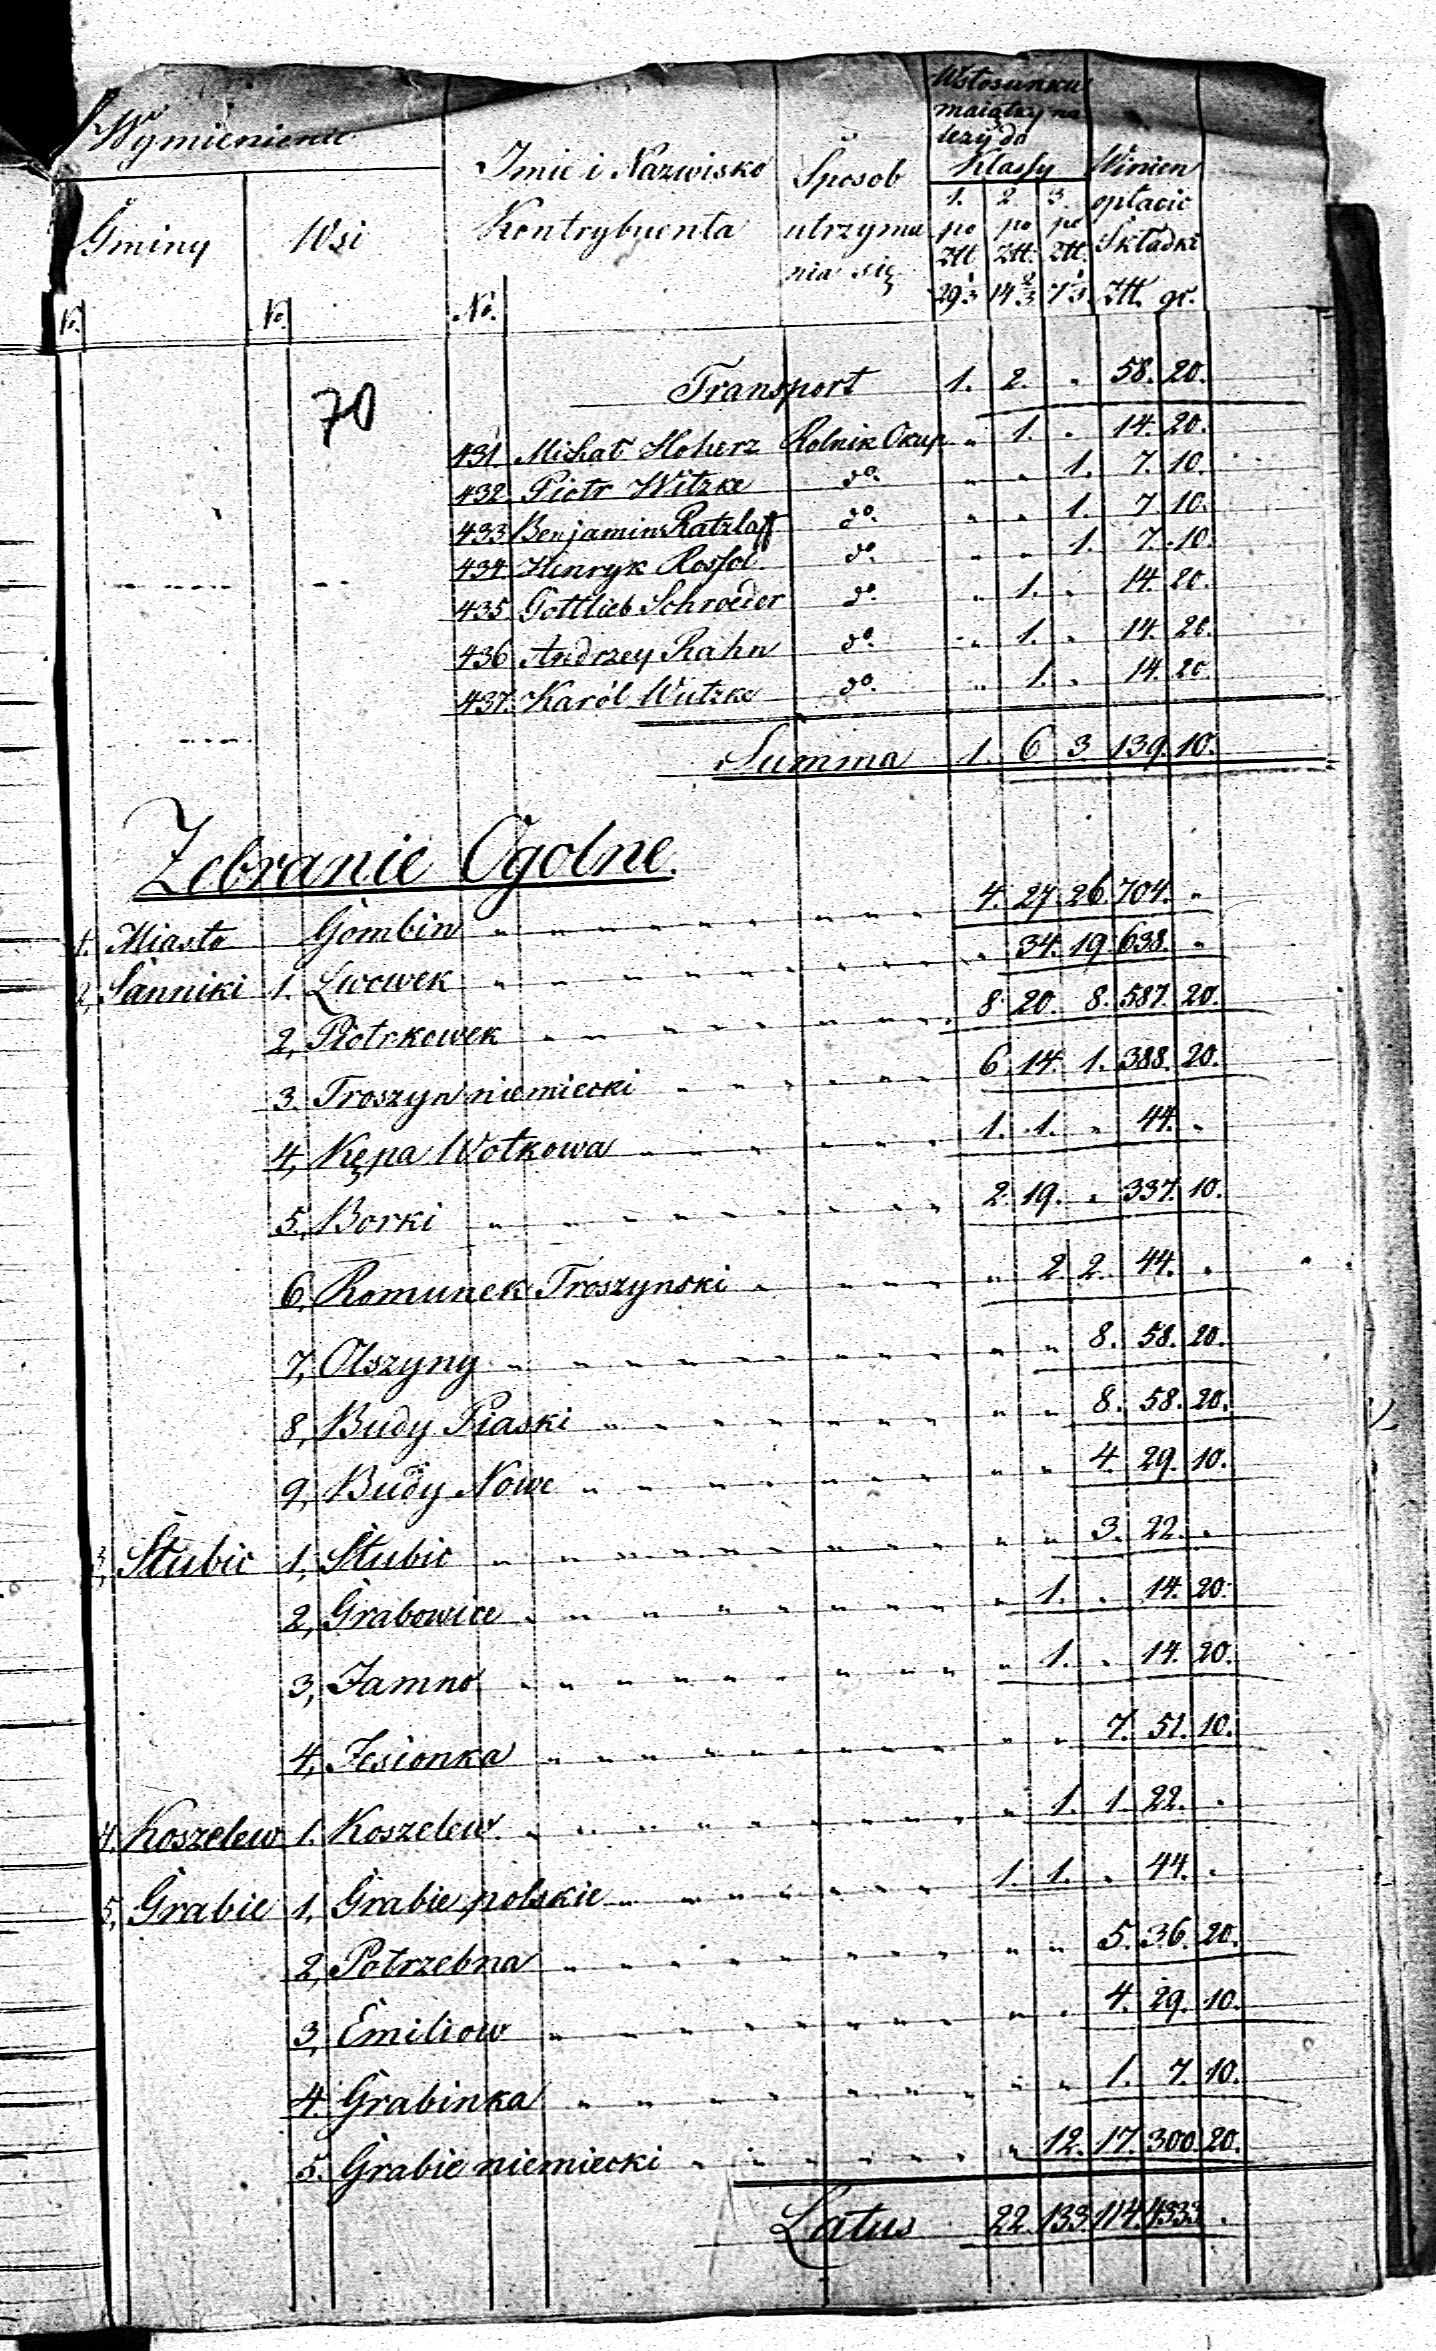 Wymienienie
Gminy
Wsi
No.
No.
Imie i Nazwisko
Kontrybuenta
No.
Sposob
utrzyma
nia się
Wstosunku
maiątku na
leży do
Klassy
1. 2. 3.
po po po
Ztt Ztt. Ztt.
29⅓ 14⅔ 7⅓
Winien
opłacic
Składki
Ztt. gr.
70
Transport 1. 2. „ 58. 20.
431. Michał Hoherz Rolnik Okup „ 1. „ 14. 20.
432. Piotr Witzke do. „ „ 1. 7. 10.
433 Benjamin Ratzlaff do. „ „ 1. 7 10.
434. Henryk Rossol do. „ „ 1. 7. 10.
435. Gottlieb Schroeder do. „ 1. „ 14. 20.
436 Andrzey Rahn do. „ 1. „ 14. 20.
437. Karól Wutzke do. „ 1. „ 14. 20.
Summa 1. 6 3. 139. 10.
Zebranie Ogolne.
1. Miasto Gombin 4. 27. 26. 704. „
2, Sanniki 1. Lwowek „ 34. 19. 638. „
2, Piotrkowek 8. 20. 8. 587. 20.
3. Troszyn niemiecki 6. 14. 1. 388. 20.
4, Kępa Wolkowa 1. 1. „ 44. „
5, Borki 2. 19. „ 337. 10.
6, Romunek Troszynski „ 2. 2. 44. „
7, Olszyny „ „ 8. 58. 20.
8, Budy Piaski „ „ 8. 58. 20.
9, Budy Nowe „ „ 4. 29. 10.
3, Słubic 1, Słubic „ „ 3. 22. „
2, Grabowice „ 1. „ 14. 20.
3, Jamno „ 1. „ 14. 20.
4, Jesionka „ „ 7. 51. 10.
4, Koszelew 1. Koszelew „ 1. 1. 22. „
5, Grabie 1, Grabie polskie 1. 1. „ 44. „
2, Potrzebna „ „ 5. 36. 20.
3, Emiliow „ „ 4. 29. 10.
4. Grabinka „ „ 1. 7. 10.
5. Grabie niemiecki „ 12. 17. 300 20.
Latus 22. 133. 114. 4333. „